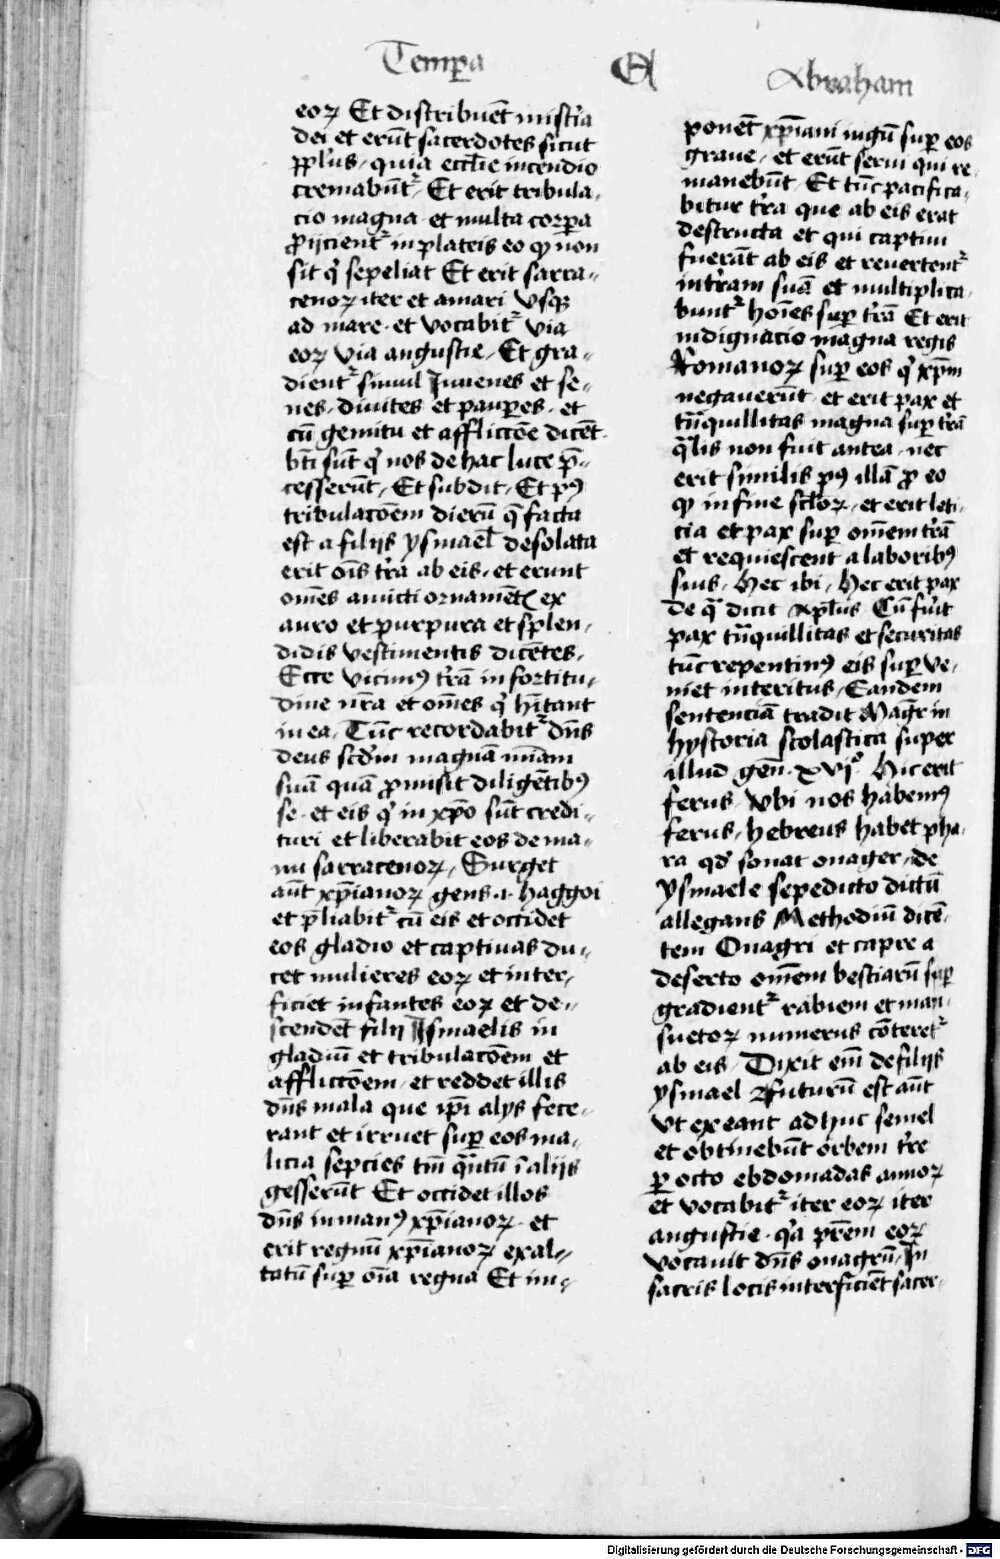 Tempa A Abraham
eoꝝ Et distribuēt mistia
dei et erūt sacerdotes sicut
ppl'us, quia eccl'ie incendio
cremabūt᷑ Et erit tribula-
cio magna et multa corpa
ꝓijcient᷑ in plateis eo qꝫ non
sit qͥ sepeliat Et erit sarra-
cenoꝝ iter et amari vsqꝫ
ad mare et vocabit᷑ via
eoꝝ via angustie, Et gra-
dient᷑ simul Juuenes et se-
nes, diuites et pauꝑes, et
cū gemitu et afflictōe dicēt
bt̄i sūt qͥ nos de hac luce p̄-
cesserūt, Et subdit, Et pꝰ
tribulacōem dierū q̄ facta
est a filijs ysmael desolata
erit oīs tr̄a ab eis, et erunt
om̄es amicti ornamētꝭ ex
auro et purpura et splen-
didis vestimentis dicētes,
Ecce vicimꝰ tr̄am in fortitu-
dine nr̄a et om̄es qͥ hītant
in ea, Tūc recordabit᷑ dn̄s
deus scd̄m magnā mīam
suā quā ꝓmisit diligētibꝰ
se et eis qͥ in xp̄o sūt credi-
turi et liberabit eos de ma-
nu sarracenoꝝ, Surget
aūt xp̄ianoꝝ gens .i. haggoi
et p̄liabit᷑ cū eis et occidet
eos gladio et captiuas du-
cet mulieres eoꝝ et inter-
ficiet infantes eoꝝ et de-
scendēt filij Ismaelis in
gladiū et tribulacōem et
afflictōem, et reddet illis
dn̄s mala que ip̄i alys fece-
rant et irruet suꝑ eos ma-
licia sepcies tm̄ qͣntū ī alijs
gesserūt Et occidet illos
dn̄s in manꝰ xp̄ianoꝝ et
erit regnū xp̄ianoꝝ exal-
tatū suꝑ oīa regna Et im-
ponēt xp̄iani iugū suꝑ eos
graue, et erūt serui qui re-
manebūt, Et tūc pacifica-
bitur tr̄a que ab eis erat
destructa et qui captiui
fuerāt ab eis et reuertent᷑
in tr̄am suā et multiplica-
bunt᷑ hoīes suꝑ tr̄ā Et erit
indignacio magna regis
Romanoꝝ suꝑ eos qͥ xp̄m
negauerūt et erit pax et
tͣnquillitas magna suꝑ tr̄ā
qͣlis non fuit antea, nec
erit similis pꝰ illā ꝓ eo
qꝫ in fine sc̄loꝝ, et erit leti-
cia et pax suꝑ om̄em tr̄ā
et requiescent a laboribꝰ
suis, Hec ibi, Hec erit pax
de qͣ dicit apl'us Cū fuīt
pax tͣnquillitas et securitas
tūc repentinꝰ eis suꝑue-
niet interitus, Eandem
sentenciā tradit Magr̄ in
hystoria scolastica super
illud geñ. xvjͦ. Hic erit
ferus, Vbi nos habemꝰ
ferus, hebreus habet pha-
ra qd̄ sonat onager, de
ysmaele sepedicto dictū
allegans Methodiū dicē-
tem Onagri et capre a
deserto om̄em bestiarū suꝑ
gradient᷑ rabiem et man-
suetoꝝ numerus cōteret᷑
ab eis, Dixit em̄ de filijs
ysmael Futurū est aūt
vt exeant adhuc semel
et obtinebūt orbem tr̄e
ꝑ octo ebdomadas annoꝝ
et vocabit᷑ iter eoꝝ iter
angustie, qͥa pr̄em eoꝝ
vocauit dn̄s onagrū, In
sacris locis interficiēt sacer-
Digitalisierung gefördert durch die Deutsche Forschungsgemeinschaft - DFG